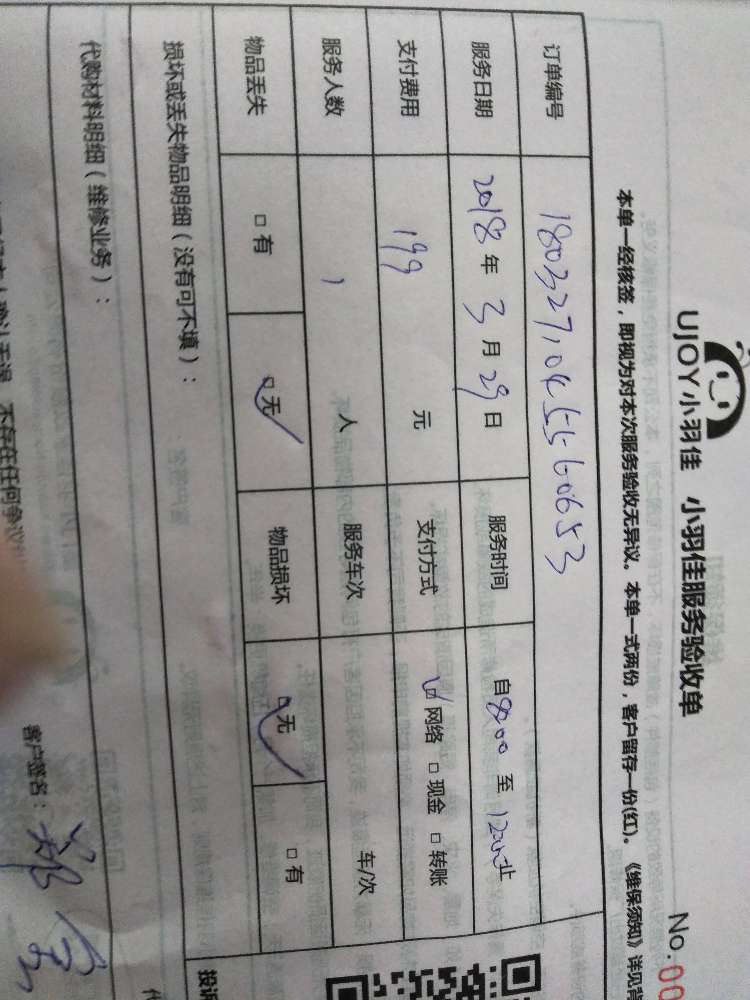 UJOY小羽佳 小羽佳服务验收单
No.00
本单一经核签，即视为对本次服务验收无异议。本单一式两份，客户留存一份(红)。《维保须知》详见背
订单编号 1803271045560653
服务日期 2018年3月29日 服务时间 自8:00至12:00止
支付费用 199 元 支付方式 ☑网络 □现金 □转账
服务人数 1 人 服务车次 车/次
物品丢失 □有 ☑无 物品损坏 ☑无 □有
损坏或丢失物品明细（没有可不填）：
代购材料明细（维修业务）： 代
投诉
不存在任何争议
客户签名：